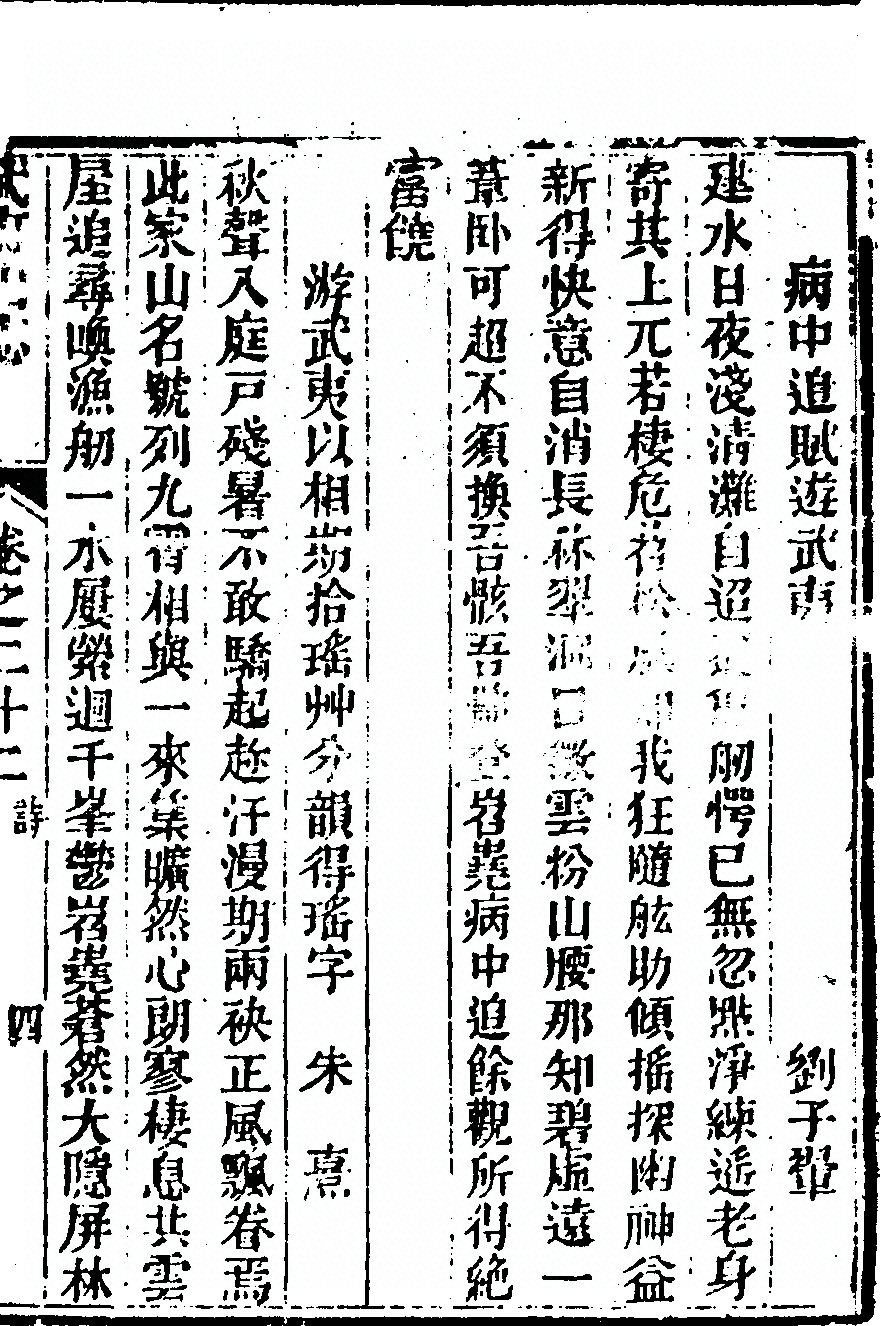 病中追賦遊武夷 劉子翬
建水日夜淺清灘自迢舠愕已無忽點淨練遥老身
寄其上兀若棲危苕松我狂隨舷助傾搖探幽神益
新得快意自消長林翠洞口數雲粉山腰那知碧虛遠一
葦卧可超不須換吾骸吾登岧嶤病中追餘觀所得絶
富饒
游武夷以相期拾瑤艸分韻得瑤字 朱熹
秋聲入庭戸殘暑不敢驕起趂汗漫期兩袂正風飄眷焉
此家山名號列九霄相與一來集曠然心朗寥棲息共雲
屋追尋喚漁舠一水屢縈迴千峯鬱岧嶤蒼然大隱屏林
卷之二十二 詩 四